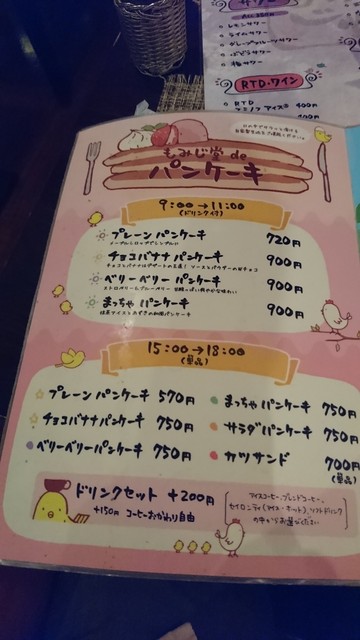 サワー
レモンサワー
ライムサワー
グレープフルーツサワー
ぶどうサワー
梅サワー
RTD・ワイン
RTD
400円
400円
もみじ堂 de
パンケーキ
9:00→11:00
(ドリンク付)
プレーン パンケーキ 720円
メープルシロップでシンプルに
チョコバナナ パンケーキ 900円
ベリーベリー パンケーキ 900円
まっちゃ パンケーキ 900円
15:00→18:00
(単品)
プレーン パンケーキ 570円
チョコバナナパンケーキ 750円
ベリーベリーパンケーキ 750円
まっちゃパンケーキ 750円
サラダパンケーキ 750円
カツサンド 700円
(単品)
ドリンクセット +200円
+150円 コーヒーおかわり自由
アイスコーヒー、ブレンドコーヒー、
セイロンティ(アイス・ホット)、ソフトドリンク
の中からお選びください